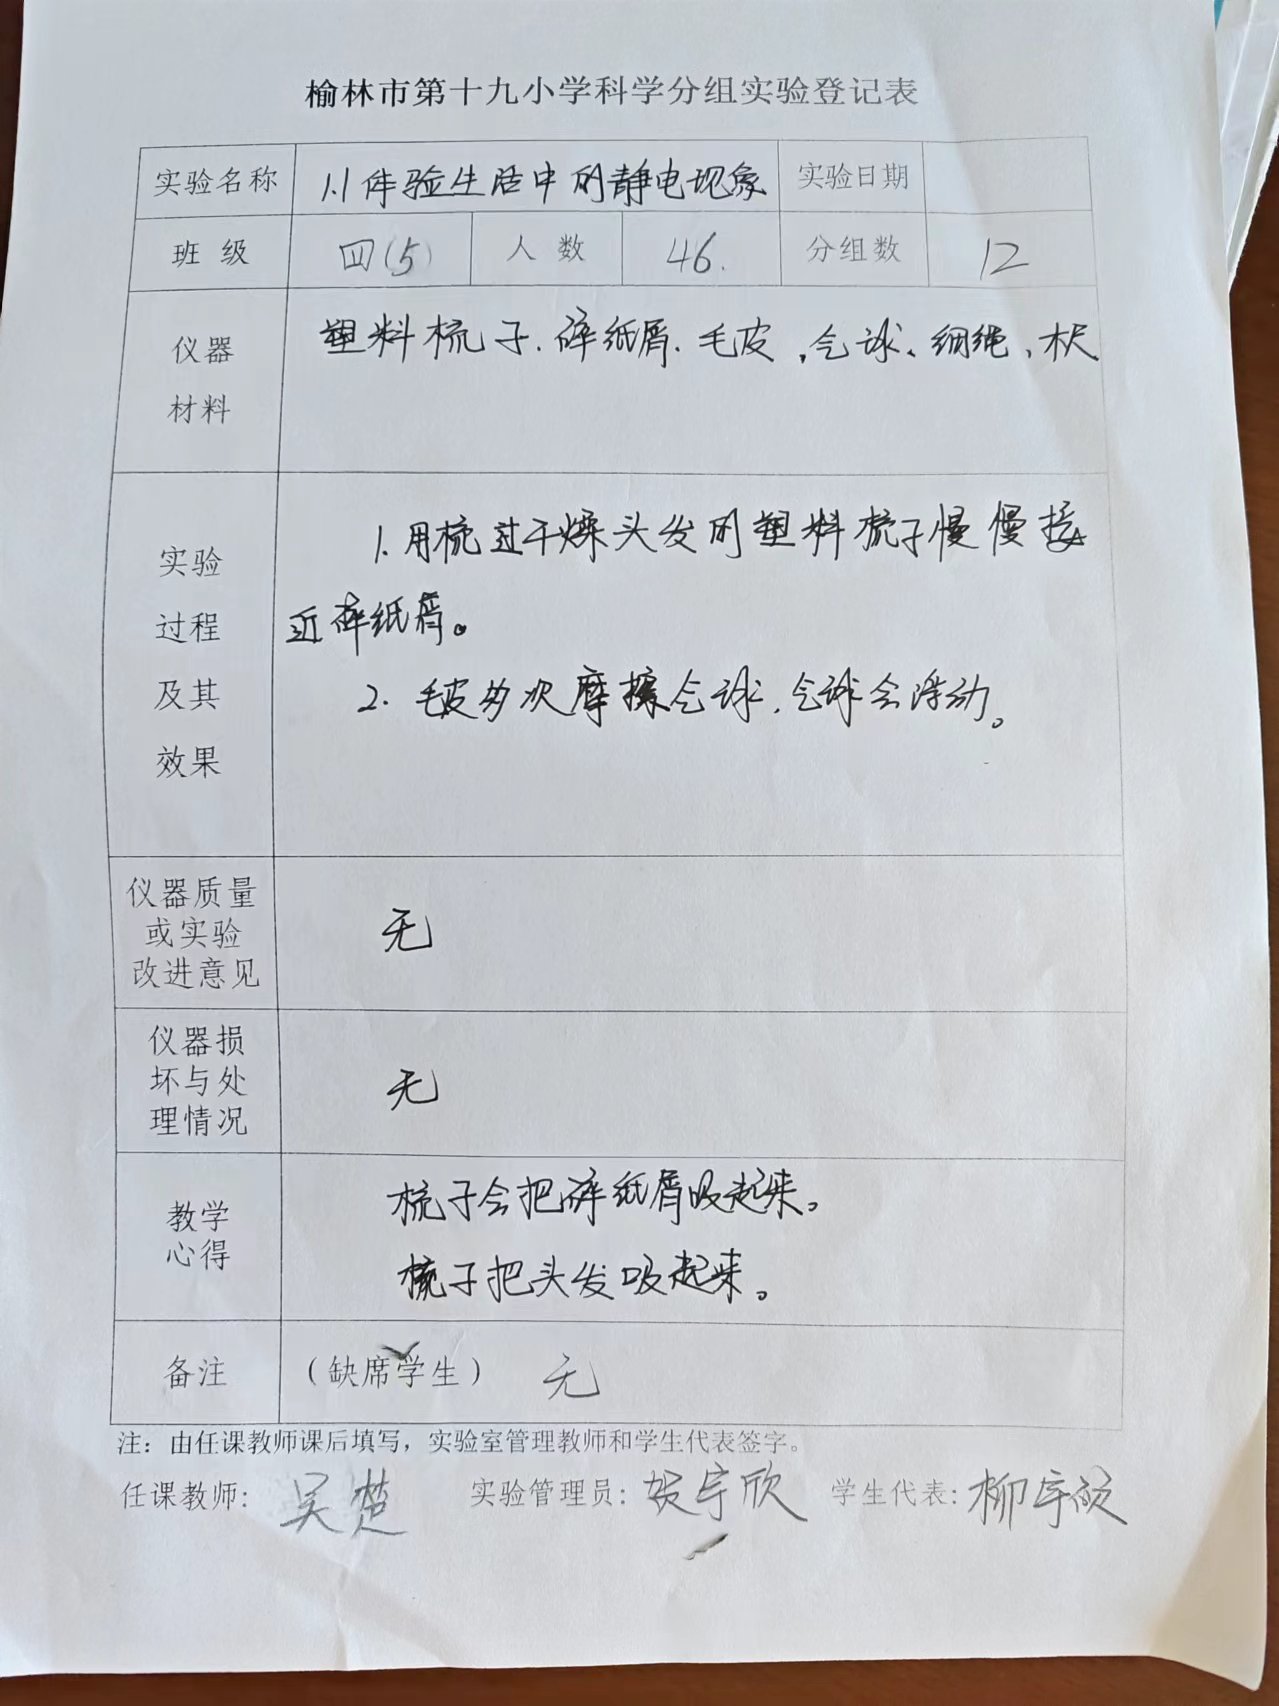 榆林市第十九小学科学分组实验登记表
实验名称 1.1体验生活中的静电现象 实验日期
班 级 四(5) 人 数 46. 分组数 12
仪器
材料
塑料梳子、碎纸屑、毛皮、气球、细绳、木尺
实验
过程
及其
效果
1.用梳过干燥头发的塑料梳子慢慢接
近碎纸屑。
2.毛皮多次摩擦气球,气球会浮动。
仪器质量
或实验
改进意见
无
仪器损
坏与处
理情况
无
教学
心得
梳子会把碎纸屑吸起来。
梳子把头发吸起来。
备注 (缺席学生) 无
注：由任课教师课后填写，实验室管理教师和学生代表签字。
任课教师: 吴楚 实验管理员: 贺宇欣 学生代表: 柳宇